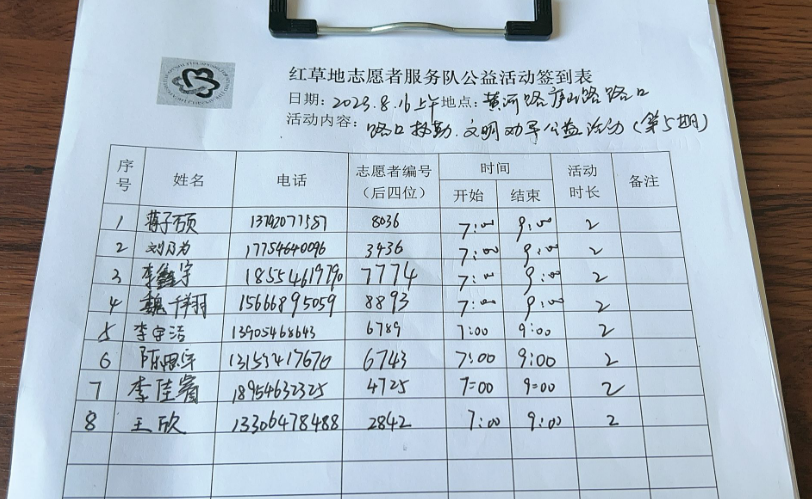 红草地志愿者服务队公益活动签到表
日期：2023.8.16上午 地点：黄河路庐山路路口
活动内容：路口执勤.文明劝导公益活动（第5期）
序号 姓名 电话 志愿者编号（后四位） 时间 开始 结束 活动时长 备注
1 蒋子硕 13792077587 8036 7:00 9:00 2
2 刘乃为 17754640096 3436 7:00 9:00 2
3 李鑫宇 18554619790 7774 7:00 9:00 2
4 魏千翔 15666895059 8893 7:00 9:00 2
5 李宇洁 13905468643 6789 7:00 9:00 2
6 陈思宇 13153417670 6743 7:00 9:00 2
7 李佳睿 18954632325 4725 7:00 9:00 2
8 王欣 13306478488 2842 7:00 9:00 2